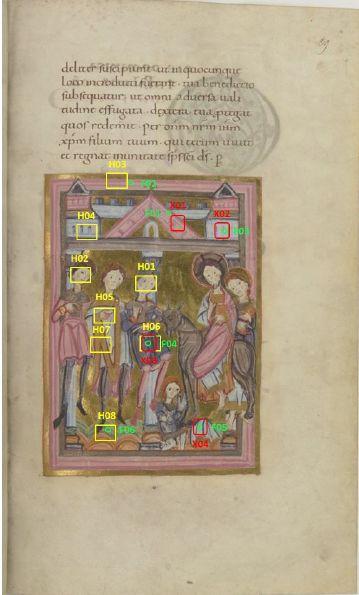 deliter suscipiunt· ut in quocunque
loco introducti fuerint· tua benedictio
subsequatur· ut omni adversa vali
tudine effugata· dextera tua protegat
quos redemit· Per nrm ihm
xpm filium tuum· qui tecum vivit
et regnat in unitate ds· p
H03
X01
H04 X02 F03
H02 H01
H05
H07 H06 F04
X03
H08 F06 F05
X04